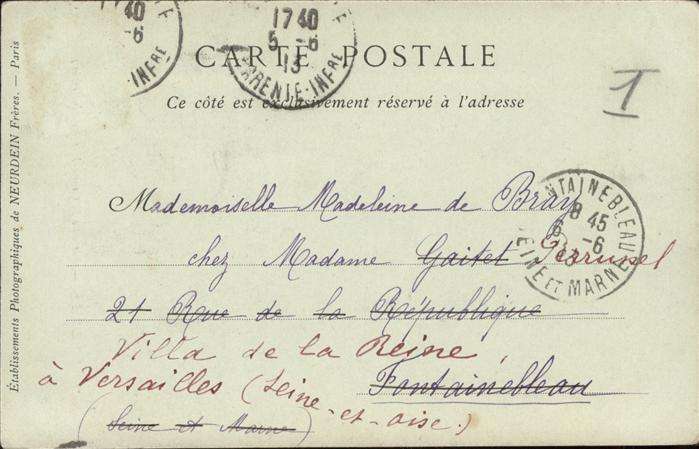 17 40
-6
INFRE
17 40
5 -6
13
CHARENTE-INFRE
CARTE POSTALE
Ce côté est exclusivement réservé à l'adresse
1
Établissements Photographiques de NEURDEIN Frères. — Paris
FONTAINEBLEAU
8 45
6 -6
13
SEINE ET MARNE
Mademoiselle Madeleine de Bray
chez Madame Gaitet
21 Rue de la République
Villa de la Reine,
à Versailles (Seine-et-Oise.)
Fontainebleau
(Seine et Marne)